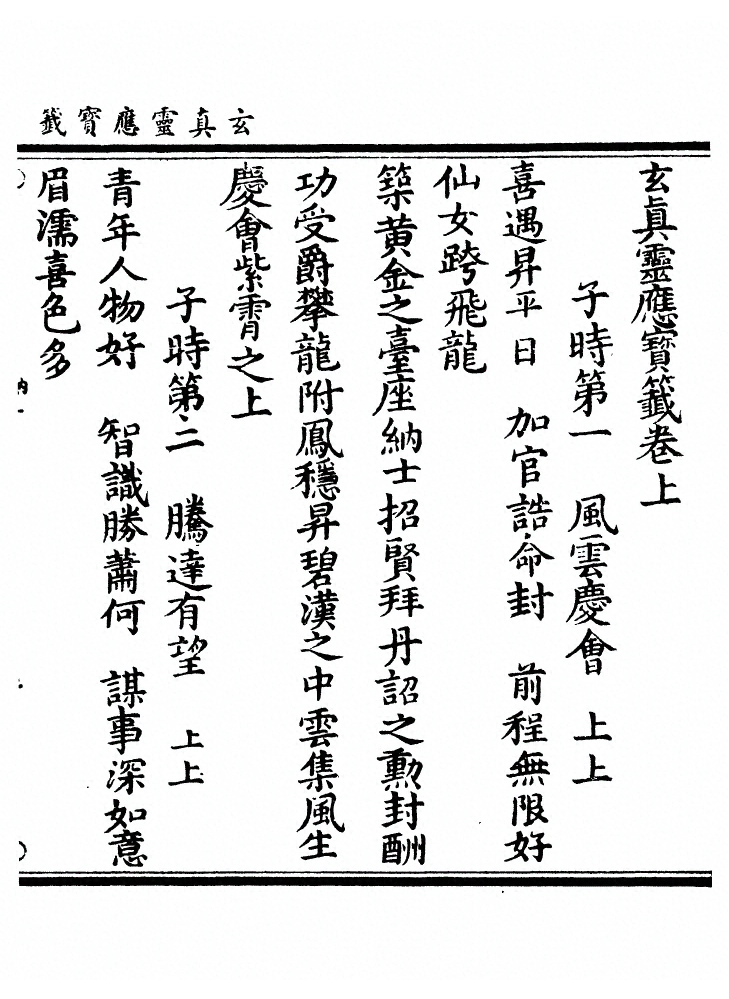 玄真靈應寶籤
玄眞靈應寶籤卷上
子時第一　風雲慶會　上上
喜遇昇平日　加官誥命封　前程無限好
仙女跨飛龍
築黃金之臺座納士招賢拜丹詔之勳封酬
功受爵攀龍附鳳穩昇碧漢之中雲集風生
慶會紫霄之上
子時第二　騰達有望　上上
青年人物好　智識勝蕭何　謀事深如意
眉濡喜色多